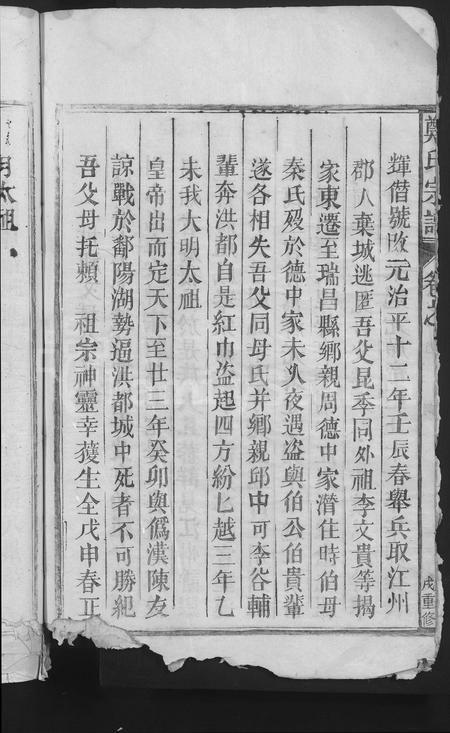 鄭氏宗譜 卷之
輝僭號改元治平十二年壬辰春舉兵取江州
郡人棄城逃匿吾父昆季同外祖李文貴等揭
家東遷至瑞昌縣鄉親周德中家潛住時伯母
秦氏歿於德中家未久夜遇盗與伯公伯貴輩
遂各相失吾父同母氏并鄉親邱中可李谷輔
輩奔洪都自是紅巾盗起四方紛匕越三年乙
未我大明太祖
皇帝出而定天下至廿三年癸卯與僞漢陳友
諒戰於鄱陽湖勢逼洪都城中死者不可勝紀
吾父母托賴 祖宗神靈幸獲生全戊申春正
戌重修
月太祖